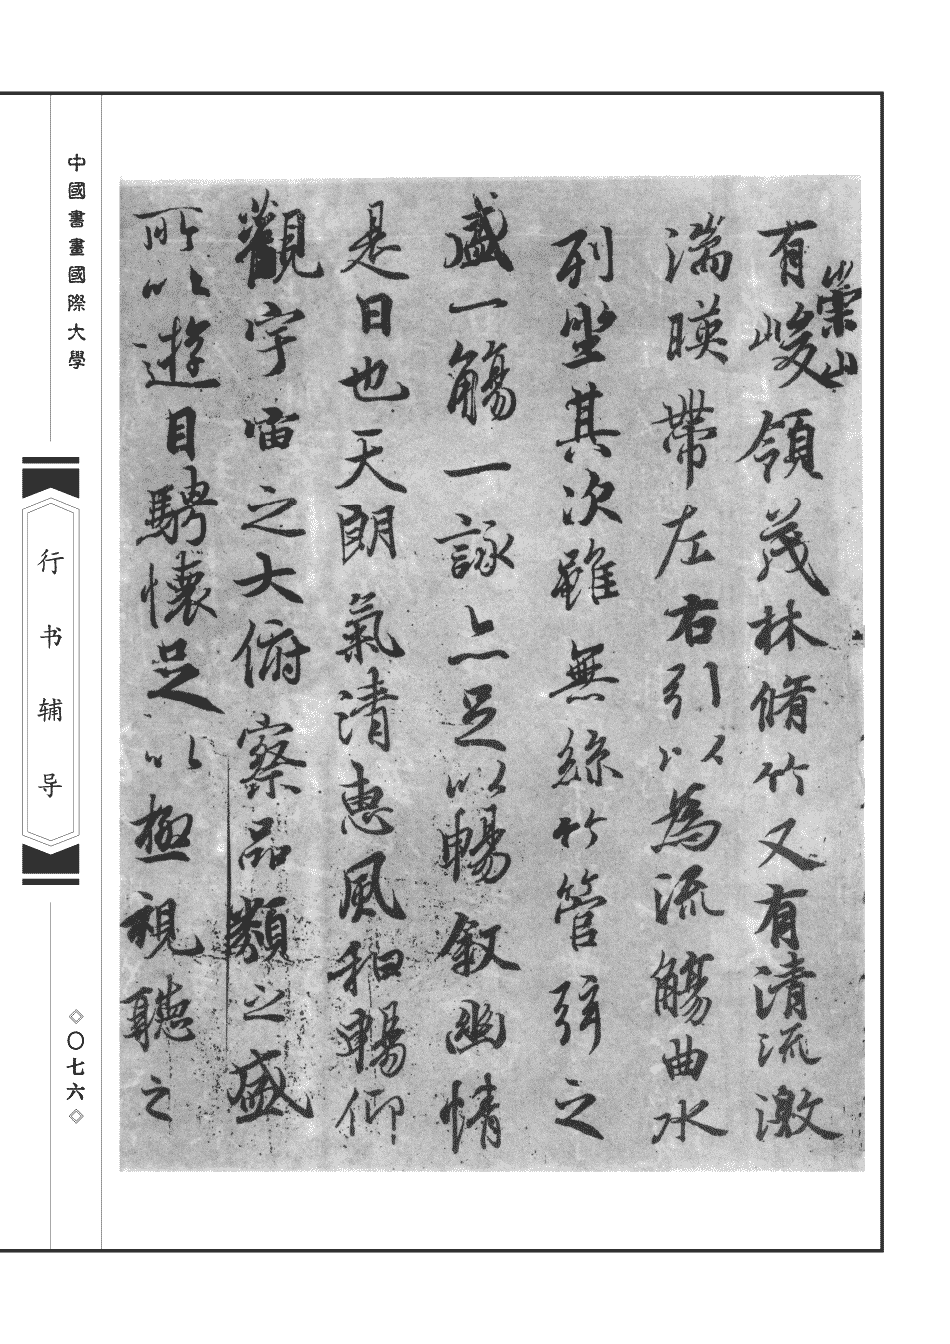 有崇山峻領茂林脩竹又有清流激
湍暎帶左右引以為流觴曲水
列坐其次雖無絲竹管弦之
盛一觴一詠亦足以暢叙幽情
是日也天朗氣清惠風和暢仰
觀宇宙之大俯察品類之盛
所以遊目騁懷足以極視聽之
中國書畫國際大學
行书辅导
◇〇七六◇